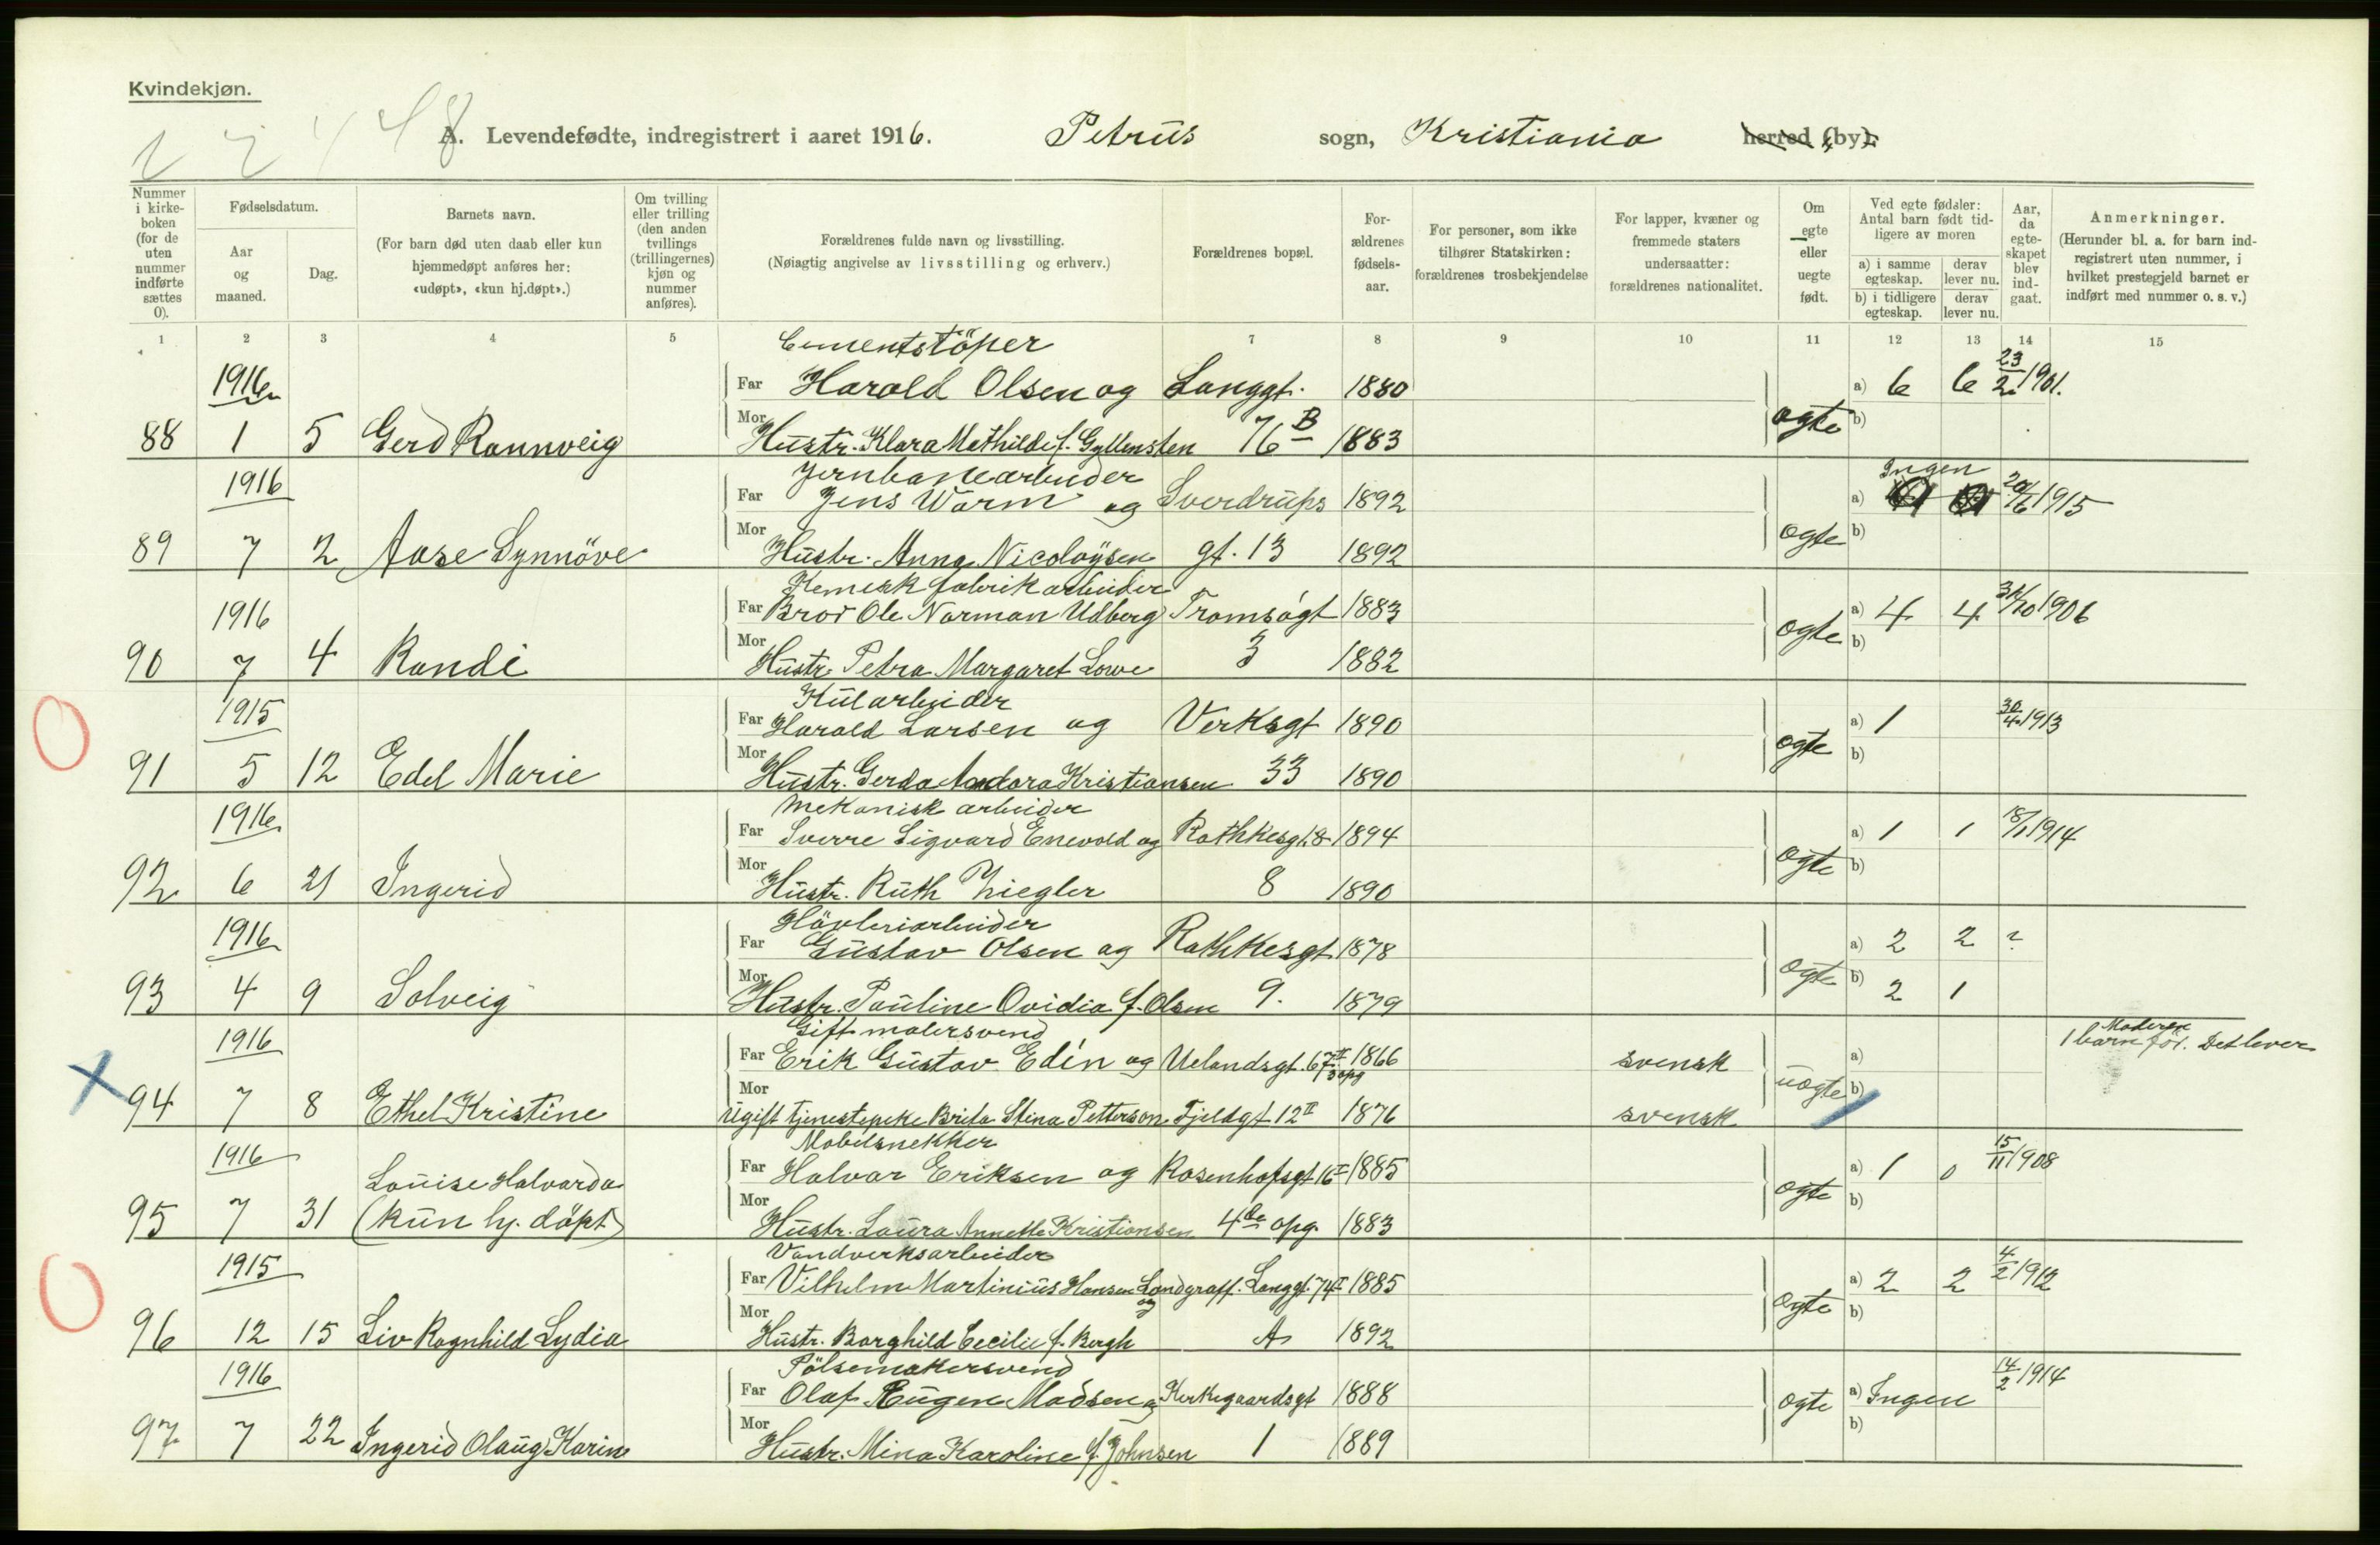 Kvindekjøn.
A. Levendefødte, indregistrert i aaret 1916. Petrus sogn, Kristiania herred (by).
Nummer i kirkeboken (for de uten nummer indførte sættes 0).
Fødselsdatum.
Aar og maaned.
Dag.
Barnets navn.
(For barn død uten daab eller kun hjemmedøpt anføres her: «udøpt», «kun hj.døpt».)
Om tvilling eller trilling (den anden tvillings (trillingernes) kjøn og nummer anføres).
Forældrenes fulde navn og livsstilling.
(Nøiagtig angivelse av livsstilling og erhverv.)
Forældrenes bopæl.
Forældrenes fødselsaar.
For personer, som ikke tilhører Statskirken: forældrenes trosbekjendelse
For lapper, kvæner og fremmede staters undersaatter: forældrenes nationalitet.
Om egte eller uegte født.
Ved egte fødsler: Antal barn født tidligere av moren
a) i samme egteskap. derav lever nu.
b) i tidligere egteskap. derav lever nu.
Aar, da egteskapet blev indgaat.
Anmerkninger.
(Herunder bl. a. for barn indregistrert uten nummer, i hvilket prestegjeld barnet er indført med nummer o. s. v.)
1 2 3 4 5 7 8 9 10 11 12 13 14 15
Cementstöper
1916 Far Harald Olsen og Langgt. 1880 a) 6 6 23/2 1901.
88 1 5 Gerd Rannveig Mor Hustr. Klara Mathilde f. Gyllensten 76 B 1883 egte b)
Jernbanearbeider Ingen
1916 Far Jens Worm og Sverdrups 1892 a) 1915
89 7 2 Aase Synnöve Mor Hustr. Anna Nicolaysen gt. 13 1892 egte b)
Kemisk fabrikarbeider
1916 Far Bror Ole Norman Udberg Tromsögt 1883 a) 4 4 31/10 1906
90 7 4 Randi Mor Hustr. Petra Margaret Lowe 3 1882 egte b)
Kularbeider
1915 Far Harald Larsen og Verksgt 1890 a) 1 30/4 1913
91 5 12 Edel Marie Mor Hustr. Gerda Andora Kristiansen 33 1890 egte b)
Mekanisk arbeider
1916 Far Sverre Sigvard Enevold og Rathkesgt. 8 1894 a) 1 1 18/1 1914
92 6 21 Ingerid Mor Hustr. Ruth Ziegler 8 1890 egte b)
Hövleriarbeider
1916 Far Gustav Olsen og Rathkesgt 1878 a) 2 2 ?
93 4 9 Solveig Mor Hustr. Pauline Ovidia f. Olsen 9. 1879 egte b) 2 1
Gift malersvend Moderen
1916 Far Erik Gustav Edin og Uelandsgt. 67 II 3 opg 1866 svensk a) 1 barn för. Det lever
94 7 8 Ethel Kristine Mor Ugift tjenestepike Brita Stina Petterson Fjeldgt 12 II 1876 svensk uegte b)
Mobelsnekker
1916 Louise Halvarda Far Halvor Eriksen og Rosenhofsgt 16 I 1885 a) 1 0 15/11 1908
95 7 31 (kun hj. döpt) Mor Hustr. Laura Annette Kristiansen 4de opg. 1883 egte b)
Vandverksarbeider
1915 Far Vilhelm Martinius Hansen Landgraff. og Langgt. 74 I 1885 a) 2 2 4/2 1912
96 12 15 Liv Ragnhild Lydia Mor Hustr. Borghild Cecilie f. Bergh A 1892 egte b)
Pölsemakersvend
1916 Far Olaf Eugen Madsen og Kirkegaardsgt 1888 a) Ingen 14/2 1914
97 7 22 Ingerid Olaug Karin Mor Hustr. Mina Karoline f. Johnsen 1 1889 egte b)